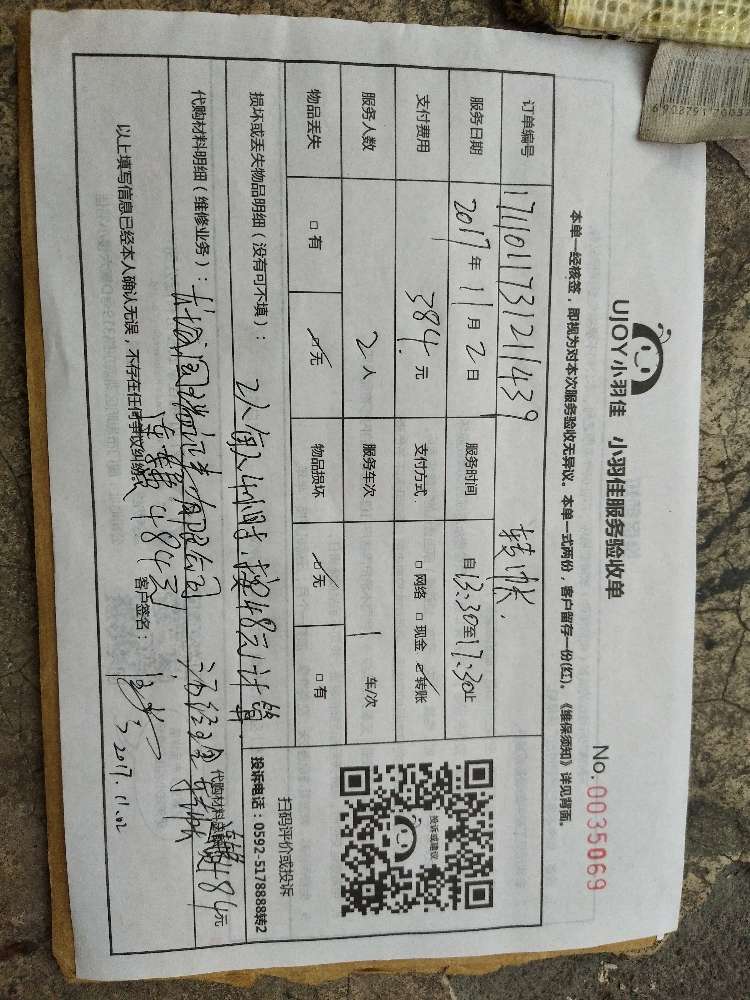 UJOY小羽佳 小羽佳服务验收单
No.0035069
本单一经核签，即视为对本次服务验收无异议。本单一式两份，客户留存一份(红)。《维保须知》详见背面。
订单编号 1711011731211439 转帐.
服务日期 2017年11月2日 服务时间 自13:30至17:30止
支付费用 384.元 支付方式 □网络 □现金 ☑转账
服务人数 2人 服务车次 1 车/次
物品丢失 □有 ☑无 物品损坏 ☑无 □有
投诉或建议
扫码评价或投诉
投诉电话：0592-5178888转2
损坏或丢失物品明细（没有可不填）： 2人每人4小时.按48元计算.
代购材料明细（维修业务）： 有限公司
484元
以上填写信息已经本人确认无误，不存在任何争议纠纷。 484元 客户签名：
2017.11.02